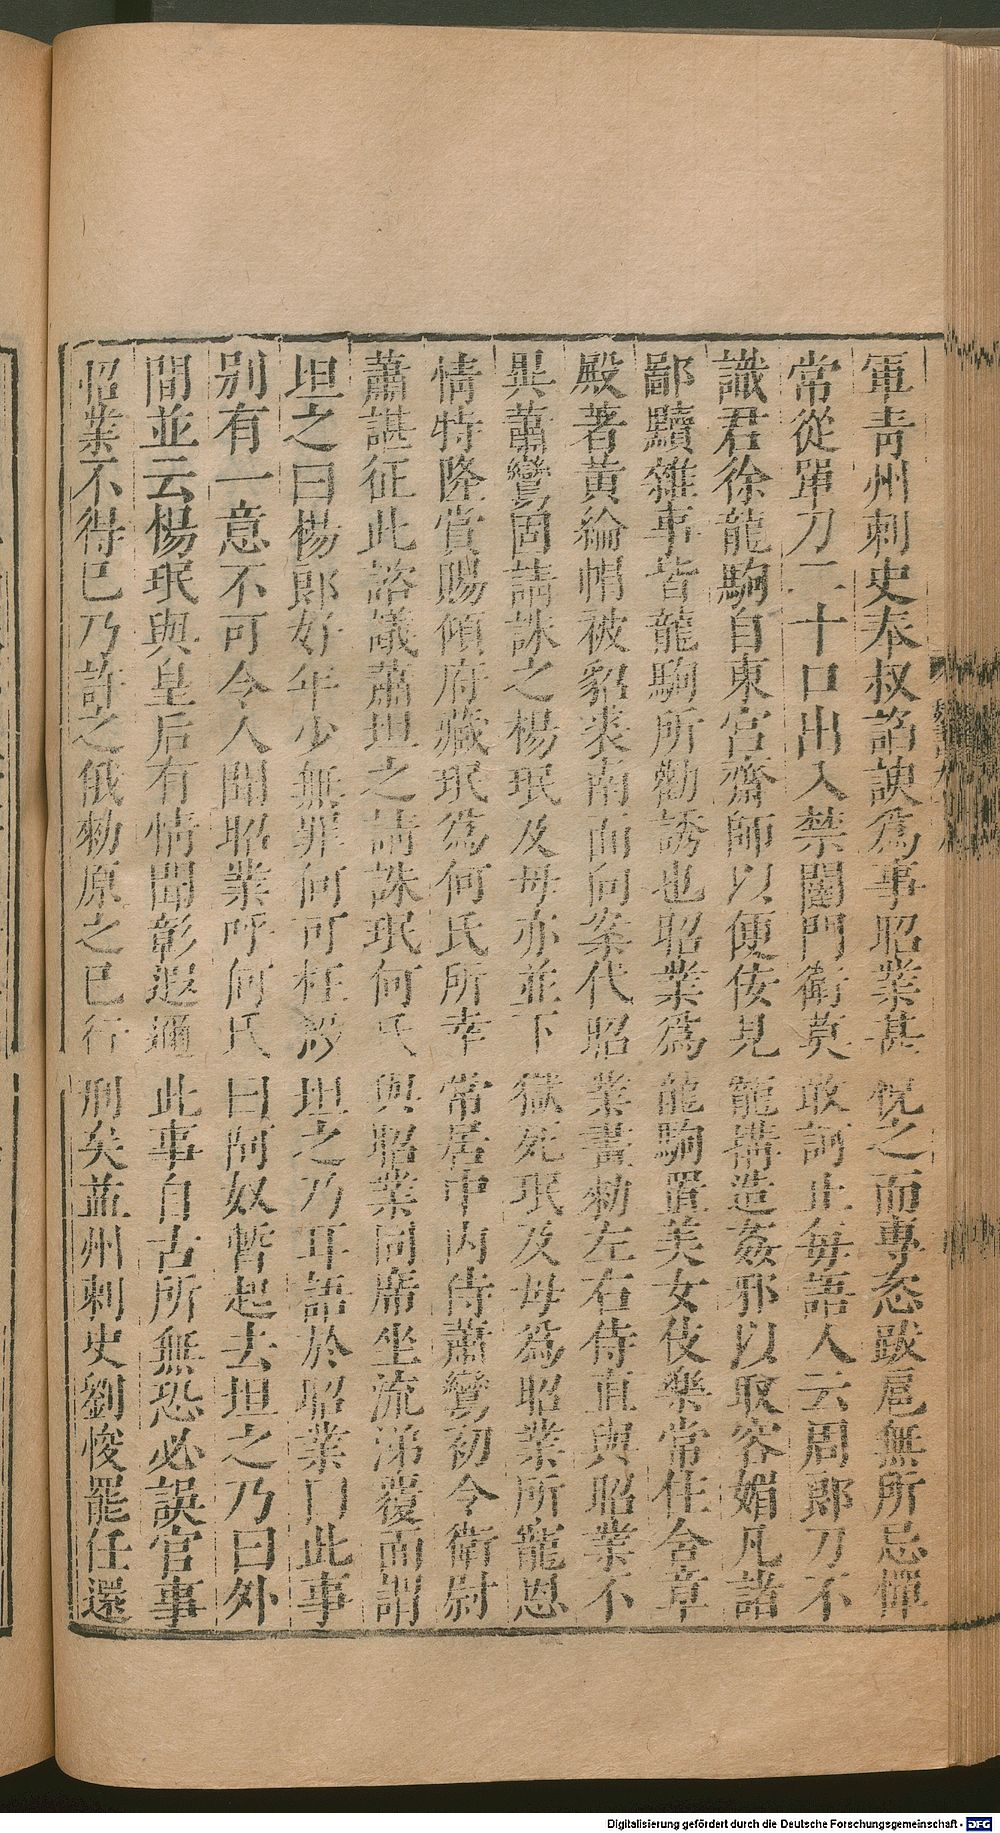 軍青州刺史奉叔諂諛爲事昭業甚恱之而專恣跋扈無所忌憚
常從單刀二十口出入禁闥門衛莫敢訶止每語人云周郎刀不
識君徐龍駒自東宮齋師以便佞見寵搆造姦邪以取容媚凡諸
鄙黷雜事皆龍駒所勸誘也昭業爲龍駒置美女伎樂常住含章
殿著黃綸帽被貂裘南面向案代昭業畫勑左右侍直與昭業不
異蕭鸞固請誅之楊珉及母亦並下獄死珉及母爲昭業所寵恩
情特隆賞賜傾府藏珉爲何氏所幸常居中内侍蕭鸞初令衛尉
蕭諶征此諮議蕭坦之請誅珉何氏與昭業同席坐流涕覆面謂
坦之曰楊郎好年少無罪何可枉殺坦之乃耳語於昭業曰此事
別有一意不可令人聞昭業呼何氏曰阿奴暫起去坦之乃曰外
間並云楊珉與皇后有情聞彰遐邇此事自古所無恐必誤官事
昭業不得已乃許之俄勑原之已行刑矣益州刺史劉悛罷任還
Digitalisierung gefördert durch die Deutsche Forschungsgemeinschaft - DFG